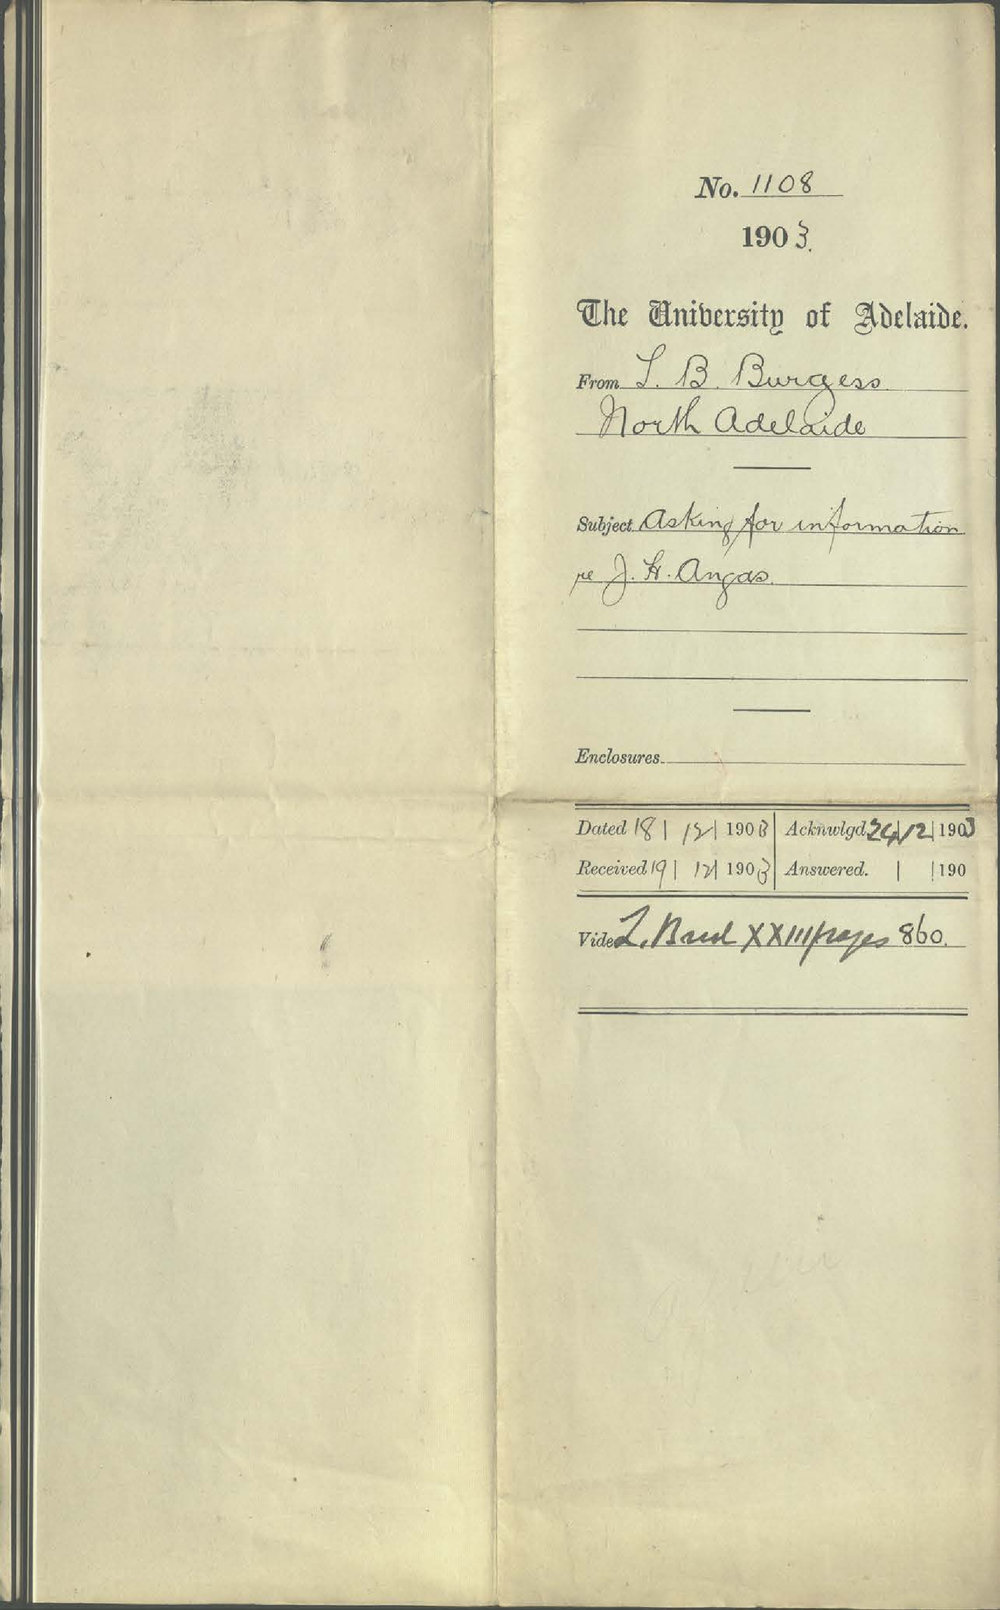 No. 1108
1903.
The University of Adelaide.
From B. Burgess
North Adelaide
Subject Asking for information
re J. H. Angas.
Enclosures
Dated 18 | 12 | 1903 Acknwlgd. 24 | 12 | 1903
Received 19 | 12 | 1903 Answered. | | 190
Vide L. XXIII pages 860.